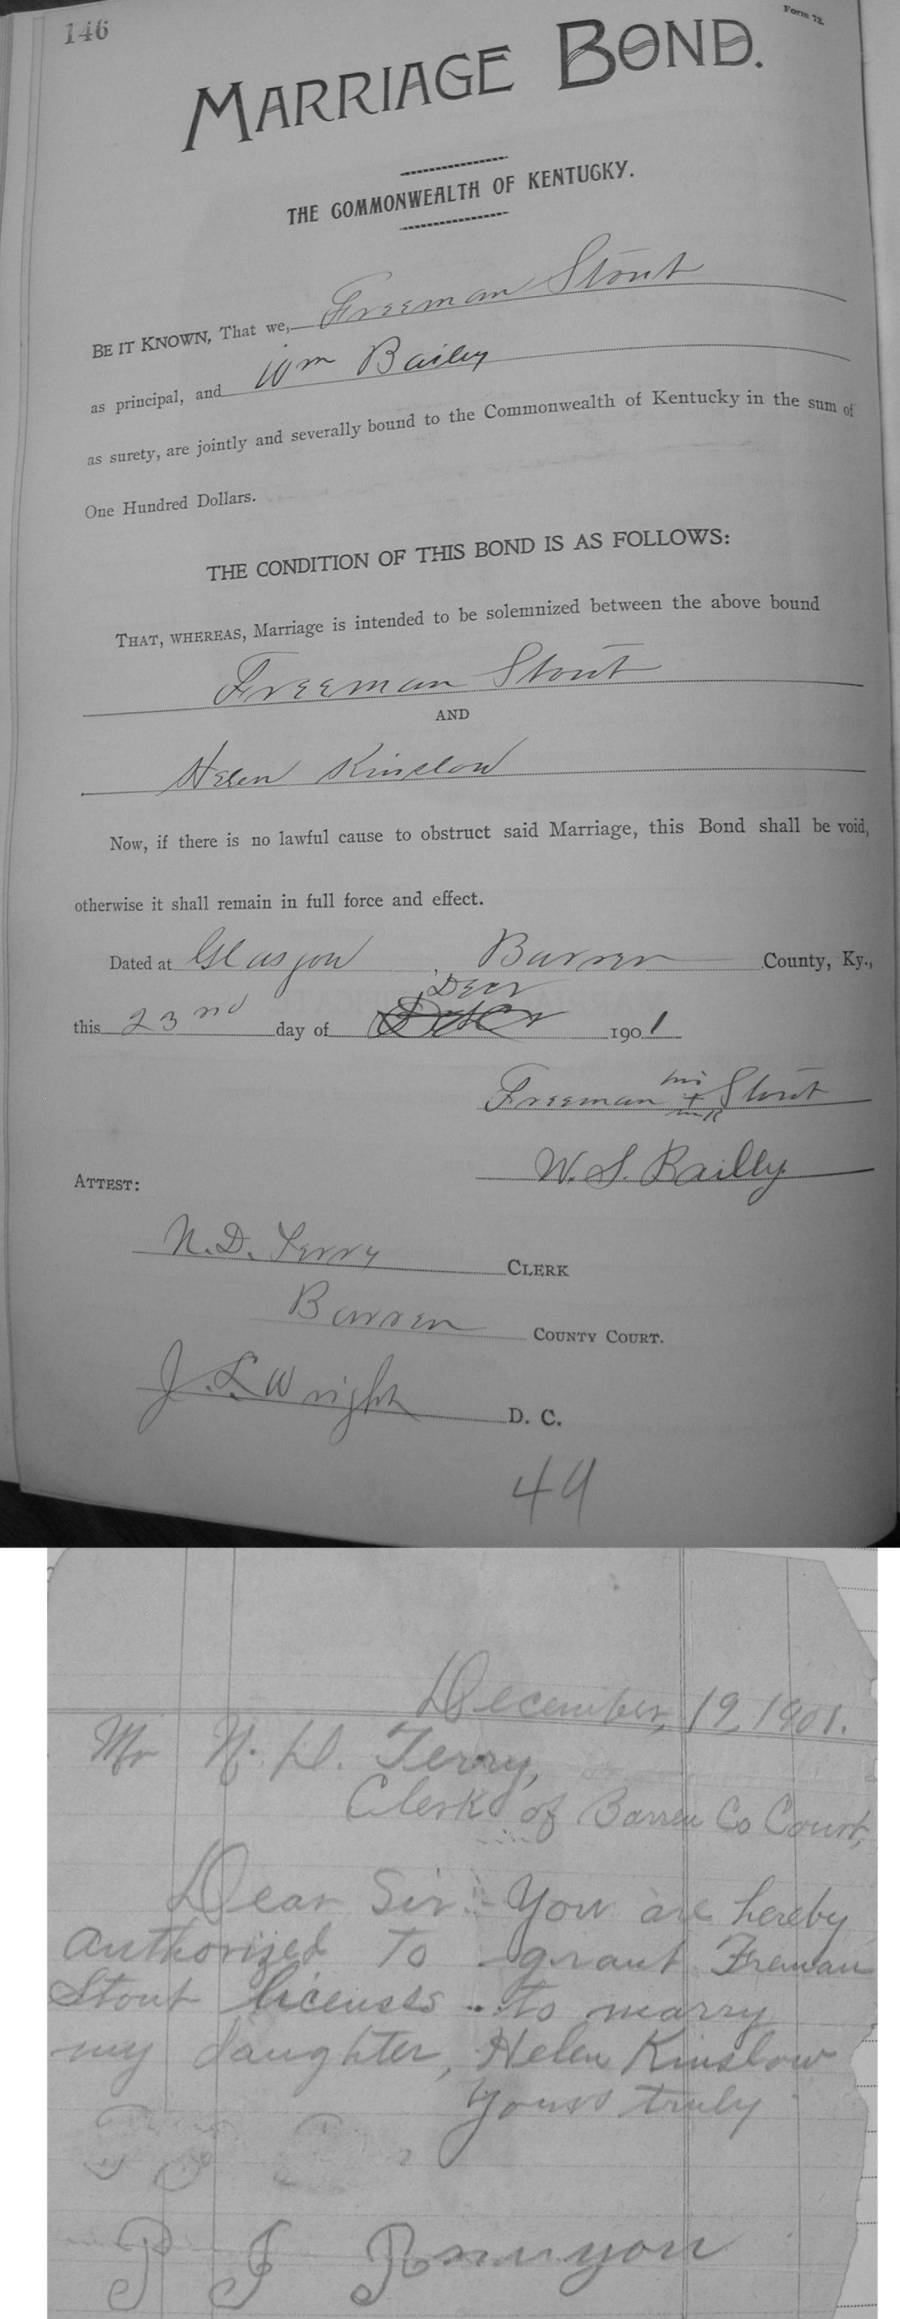 146
Form 72.
MARRIAGE BOND.
THE COMMONWEALTH OF KENTUCKY.
BE IT KNOWN, That we, Freeman Stout
as principal, and Wm Bailey
as surety, are jointly and severally bound to the Commonwealth of Kentucky in the sum of
One Hundred Dollars.
THE CONDITION OF THIS BOND IS AS FOLLOWS:
THAT, WHEREAS, Marriage is intended to be solemnized between the above bound
Freeman Stout
AND
Helen Kinslow
Now, if there is no lawful cause to obstruct said Marriage, this Bond shall be void,
otherwise it shall remain in full force and effect.
Dated at Glasgow, Barren County, Ky.,
Decr
this 23nd day of 1901
his
Freeman + Stout
mk
W. S. Bailly
ATTEST:
N. D. Terry CLERK
Barren COUNTY COURT.
J. L. Wright D. C.
49
December, 19, 1901.
Mr N. D. Terry,
Clerk of Barren Co Court,
Dear Sir:- You are hereby
authorized to grant Freman
Stout licenses to marry
my daughter, Helen Kinslow
Yours truly
P J